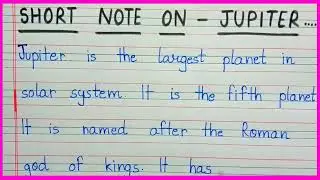 SHORT NOTE ON - JUPITER....
Jupiter is the largest planet in
solar system. It is the fifth planet
It is named after the Roman
god of kings. It has